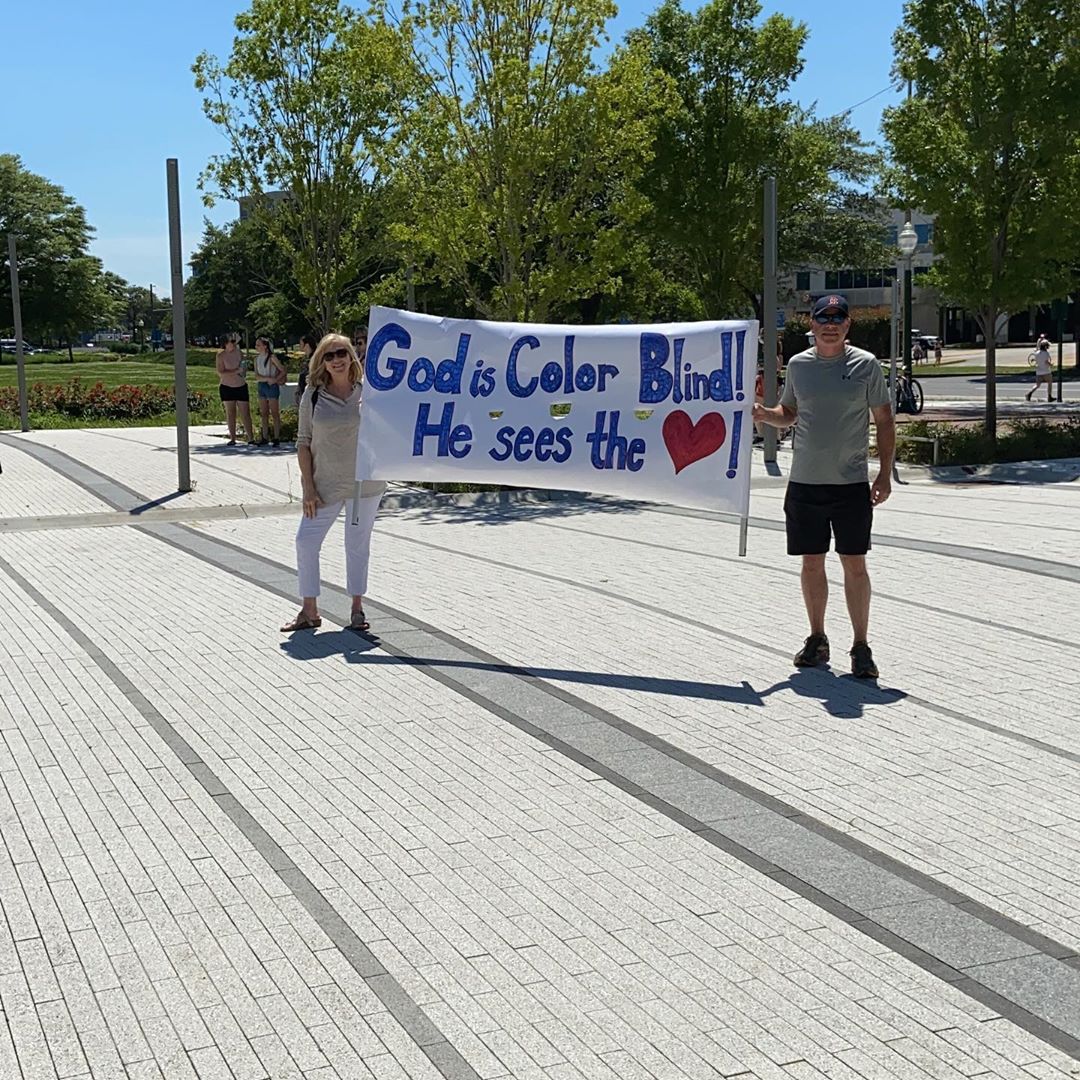 God is Color Blind!
He sees the ❤️!